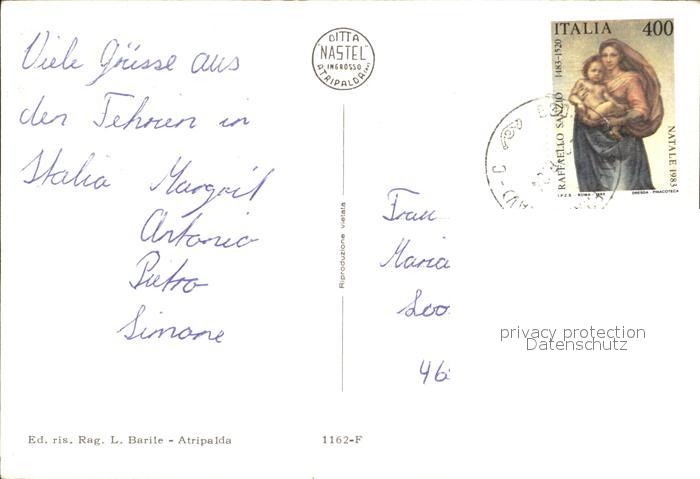 Viele Grüsse aus
den Fehrien in
Italia Margrit
Antonio
Pietro
Simone
DITTA
"NASTEL"
INGROSSO
ATRIPALDA
Riproduzione vietata
ITALIA 400
RAFFAELLO SANZIO 1483-1520
NATALE 1983
I.P.Z.S. ROMA 1983 DRESDA PINACOTECA
Frau
Maria
privacy protection
Datenschutz
46
Ed. ris. Rag. L. Barile - Atripalda 1162-F